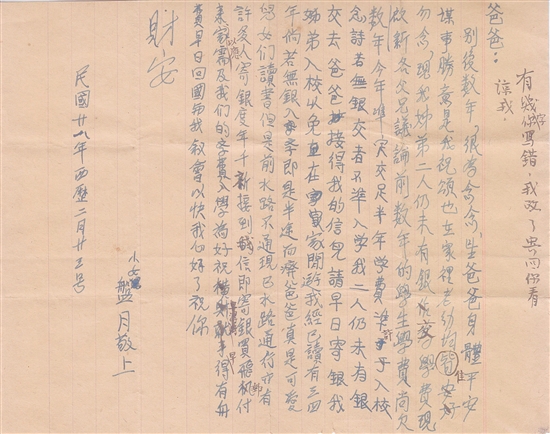 有幾個字寫錯，我改了回你看
諒我
爸爸：
別後数年了很為念念生爸爸身體平安
謀事勝意是我祝頌也在家裡老幼均皆安好
佳
勿念現我姊弟二人仍未有銀交學費現
啟新各父兄議論前数年的學生學費尚欠
数年今年準实交足半年學費準許入校
念詩若無銀交者不準入學我二人仍未有銀
交去爸爸接得我的信兒請早日寄銀我
姊弟入校以免在家閒遊我經已讀有三四
年倘若無銀入季即是半途而癈爸爸真是可愛
兒女们讀書但是前水路不通現已水路通行亦有
許多人寄銀度年千祈接到我信即寄銀買飛机付
來及我们的學費入學為好祝得有舟
費早日回國與我叙會以快我心好了祝你
財安
小女 盤月敬上
民國年西歷二月廿五号